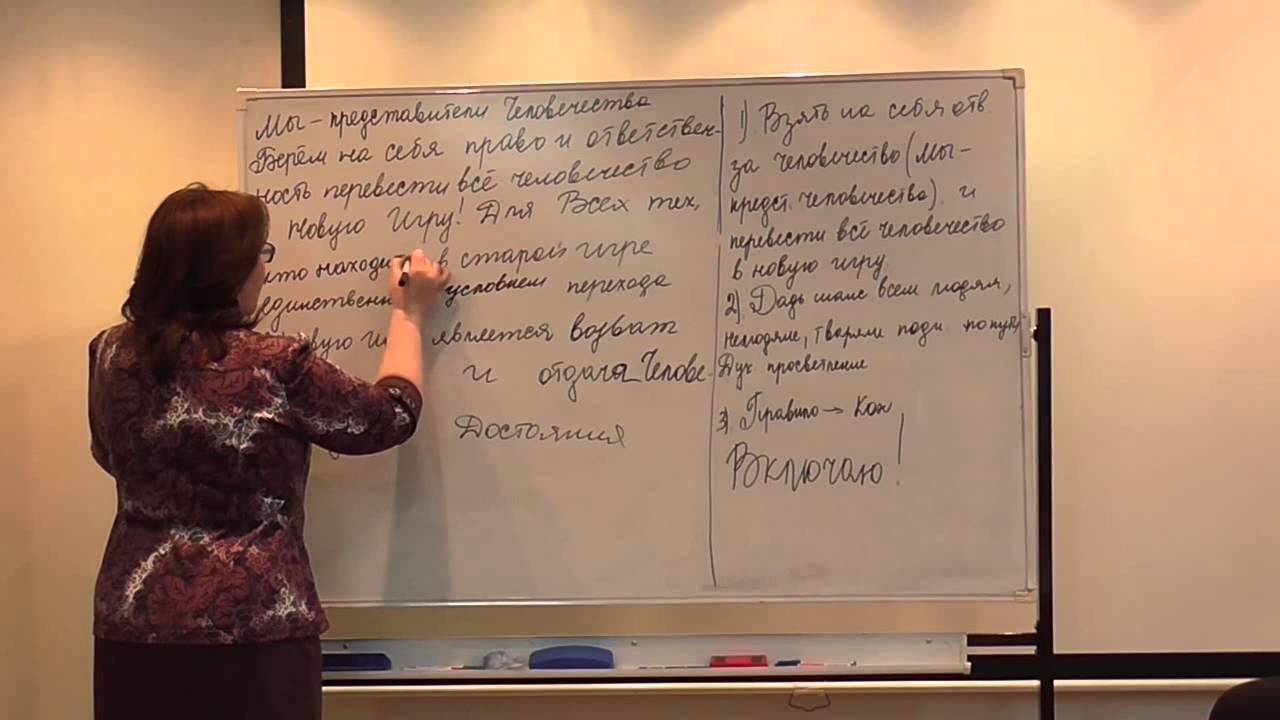 Мы – представители Человечества
Берём на себя право и ответствен-
ность перевести всё человечество
Новую Игру! Для Всех тех,
кто находи в старой игре
единственн условием перехода
вую иг является возврат
и отдача Челове-
Достояния
1). Взять на себя отв
за человечество (Мы –
предст. человечества) и
перевести всё человечество
в новую игру
2). Дадь шанс всем людям,
нелюдям, тварям
Дух. просветление
3). Правило → Кон
Включаю!